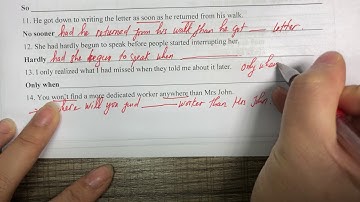 11. He got down to writing the letter as soon as he returned from his walk.
No sooner had he returned from his walk than he got letter.
12. She had hardly begun to speak before people started interrupting her.
Hardly had she begun to speak when
13. I only realized what I had missed when they told me about it later.
Only when
only when
14. You won't find a more dedicated worker anywhere than Mrs John.
will you find worker than Mrs John.